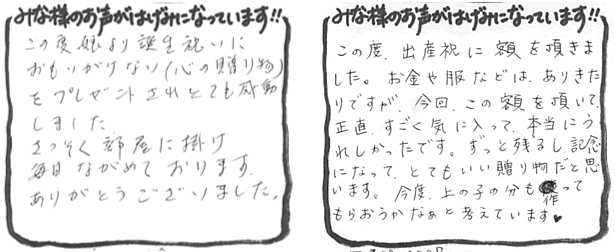 みな様のお声がはげみになっています!!
この度娘より誕生祝いに
おもいがけない(心の贈り物)
をプレゼントされとても感動
しました。
さっそく部屋に掛け
毎日ながめております。
ありがとうございました。
みな様のお声がはげみになっています!!
この度、出産祝に額を頂きま
した。お金や服などは、ありきた
りですが、今回、この額を頂いて、
正直、すごく気に入って、本当にう
れしかったです。ずっと残るし、記念
になって、とてもいい贈り物だと思
います。今度、上の子の分も作って
もらおうかなぁと考えています♥